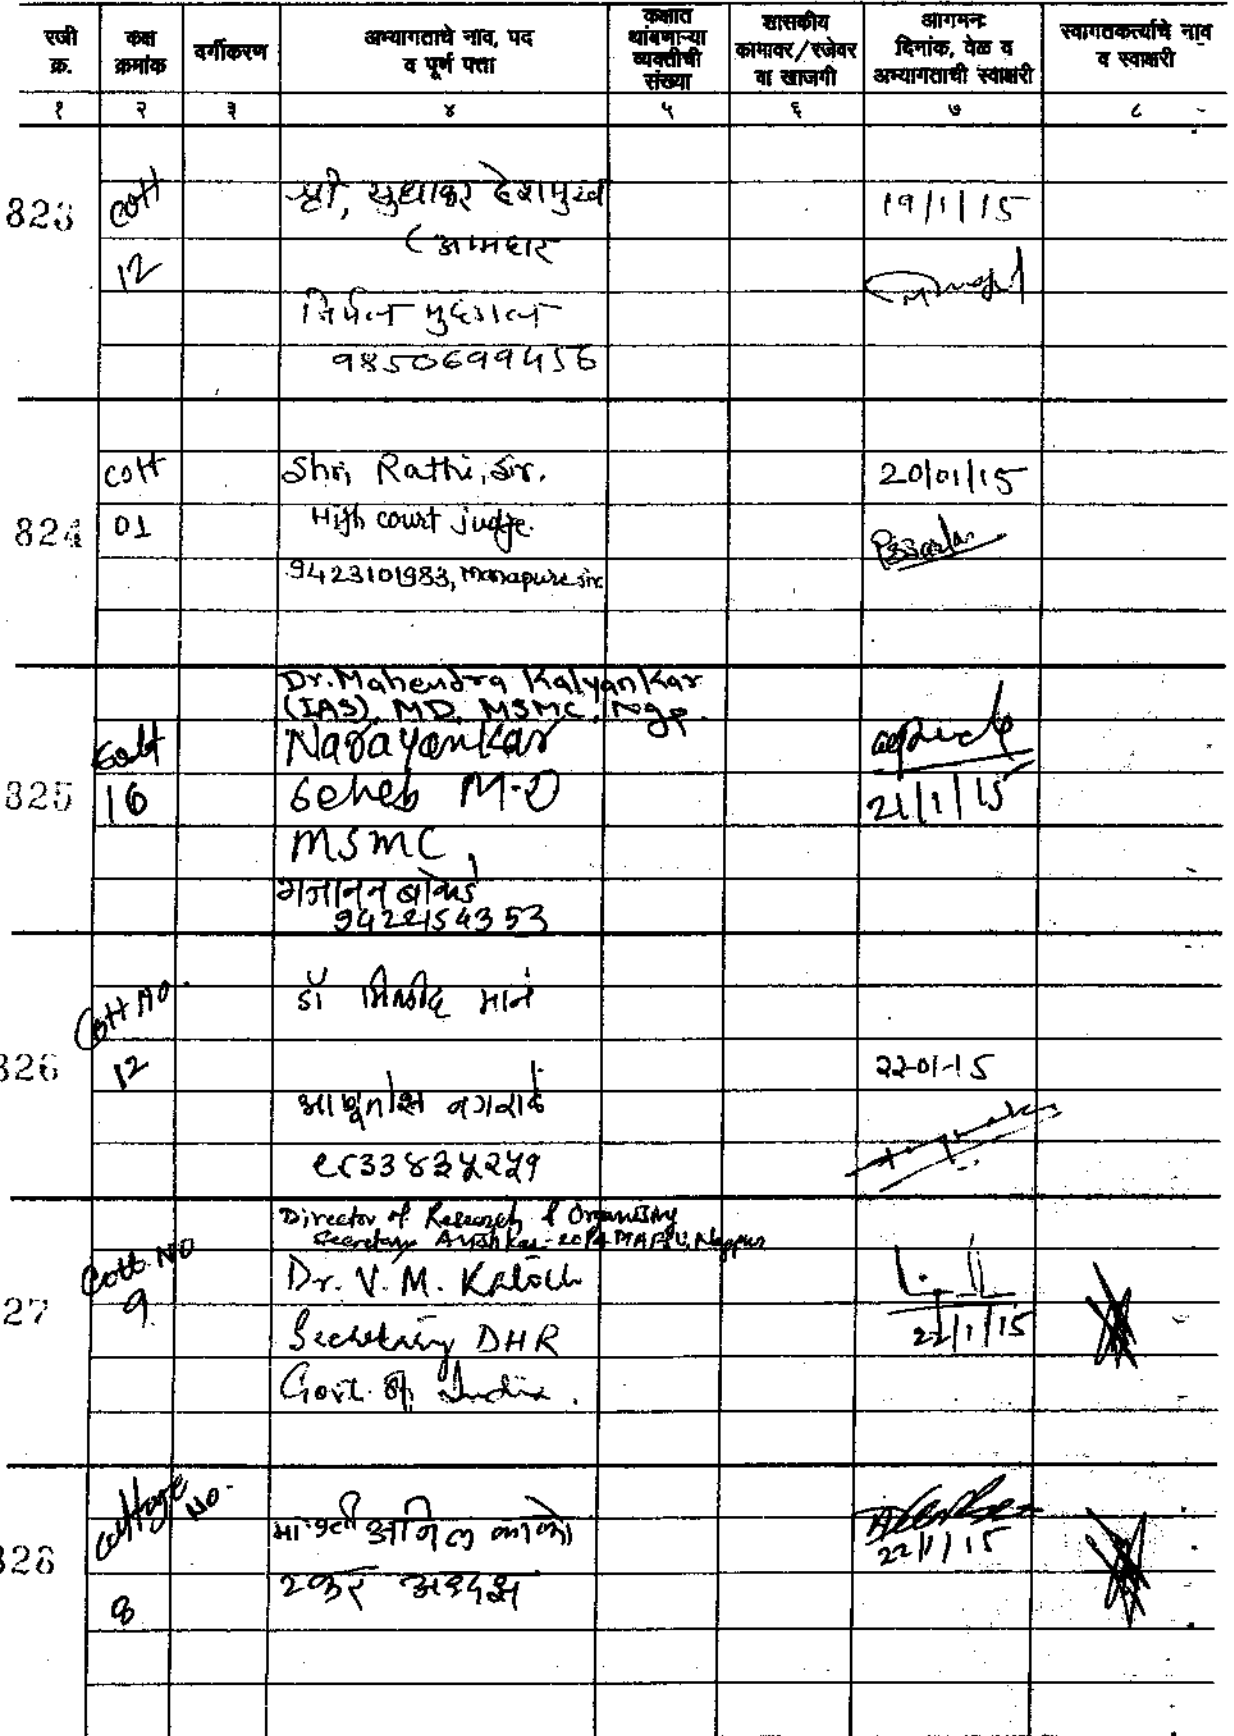 रजी क्र.
कक्ष क्रमांक
वर्गीकरण
अभ्यागताचे नांव, पद व पूर्ण पत्ता
कक्षात थांबणाऱ्या व्यक्तीची संख्या
शासकीय कामावर/रजेवर वा खाजगी
आगमन दिनांक, वेळ व अभ्यागताची स्वाक्षरी
स्वागतकर्त्याचे नाव व स्वाक्षरी
१ २ ३ ४ ५ ६ ७ ८
823 Cott 12
श्री, सुधाकर देशमुख
(आमदार
19/1/15
9850699456
824 Cott 01
Shri Rathi, Sir.
High court judge.
9423101983, Manapure sir
20/01/15
825 Cott 16
Dr. Mahendra Kalyankar
(IAS), MD, MSMC, Ngp.
Narayankar
Saheb M-D
MSMC,
गजानन
21/1/15
826 Cott No. 12
डॉ मिलींद माने
22-01-15
27 Cott. No 9
Director of Research & Organising
Secretary MAFSU, Nagpur
Dr. V. M. Katoch
Secretary DHR
Govt. of India.
22/1/15
828 Cottage No. 8
अनिल
22/1/15